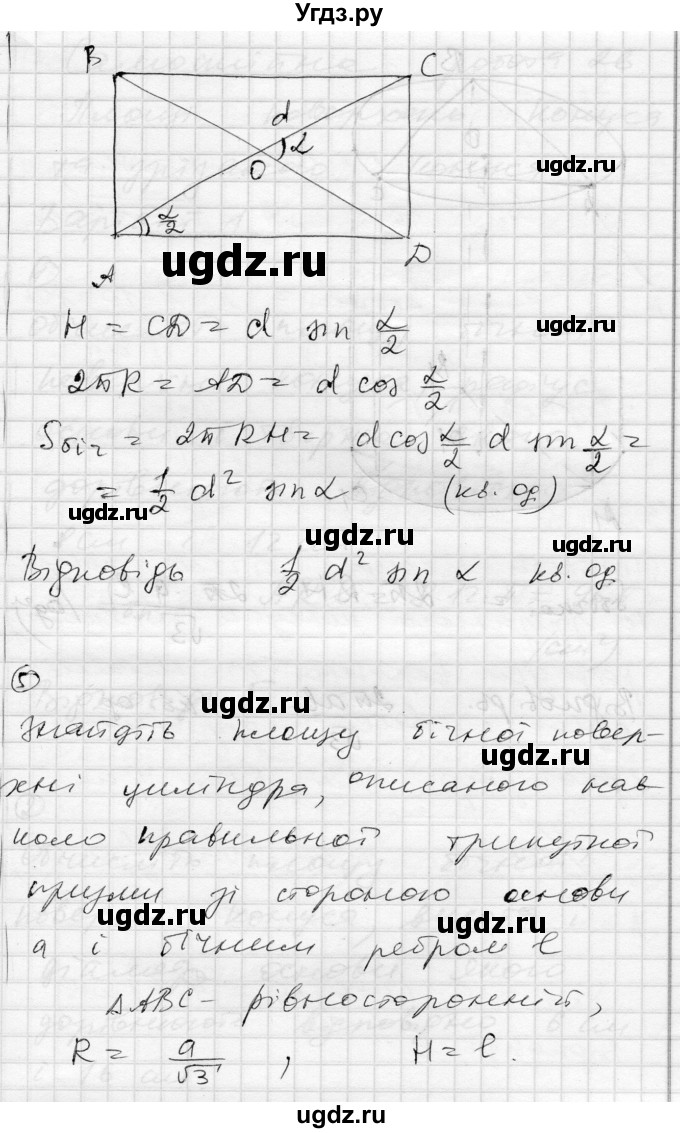 Угдз.ру
B
C
d
α
ugdz.ru
O
α/2
ugdz.ru
A
D
H = CD = d sin α/2
ugdz.ru
2πR = AD = d cos α/2
Sбіч = 2πRH = d cos α/2 d sin α/2 =
= 1/2 d² sin α (кв. од)
ugdz.ru
ugdz.ru
ugdz.ru
Відповідь 1/2 d² sin α кв. од.
⑤
ugdz.ru
Знайдіть площу бічної повер-
ugdz.ru
хні циліндра, описаного нав
коло правильної трикутної
призми зі стороною основи
ugdz.ru
ugdz.ru
a і бічним ребром l
ΔABC - рівносторонній,
R = a/√3 , H = l.
ugdz.ru